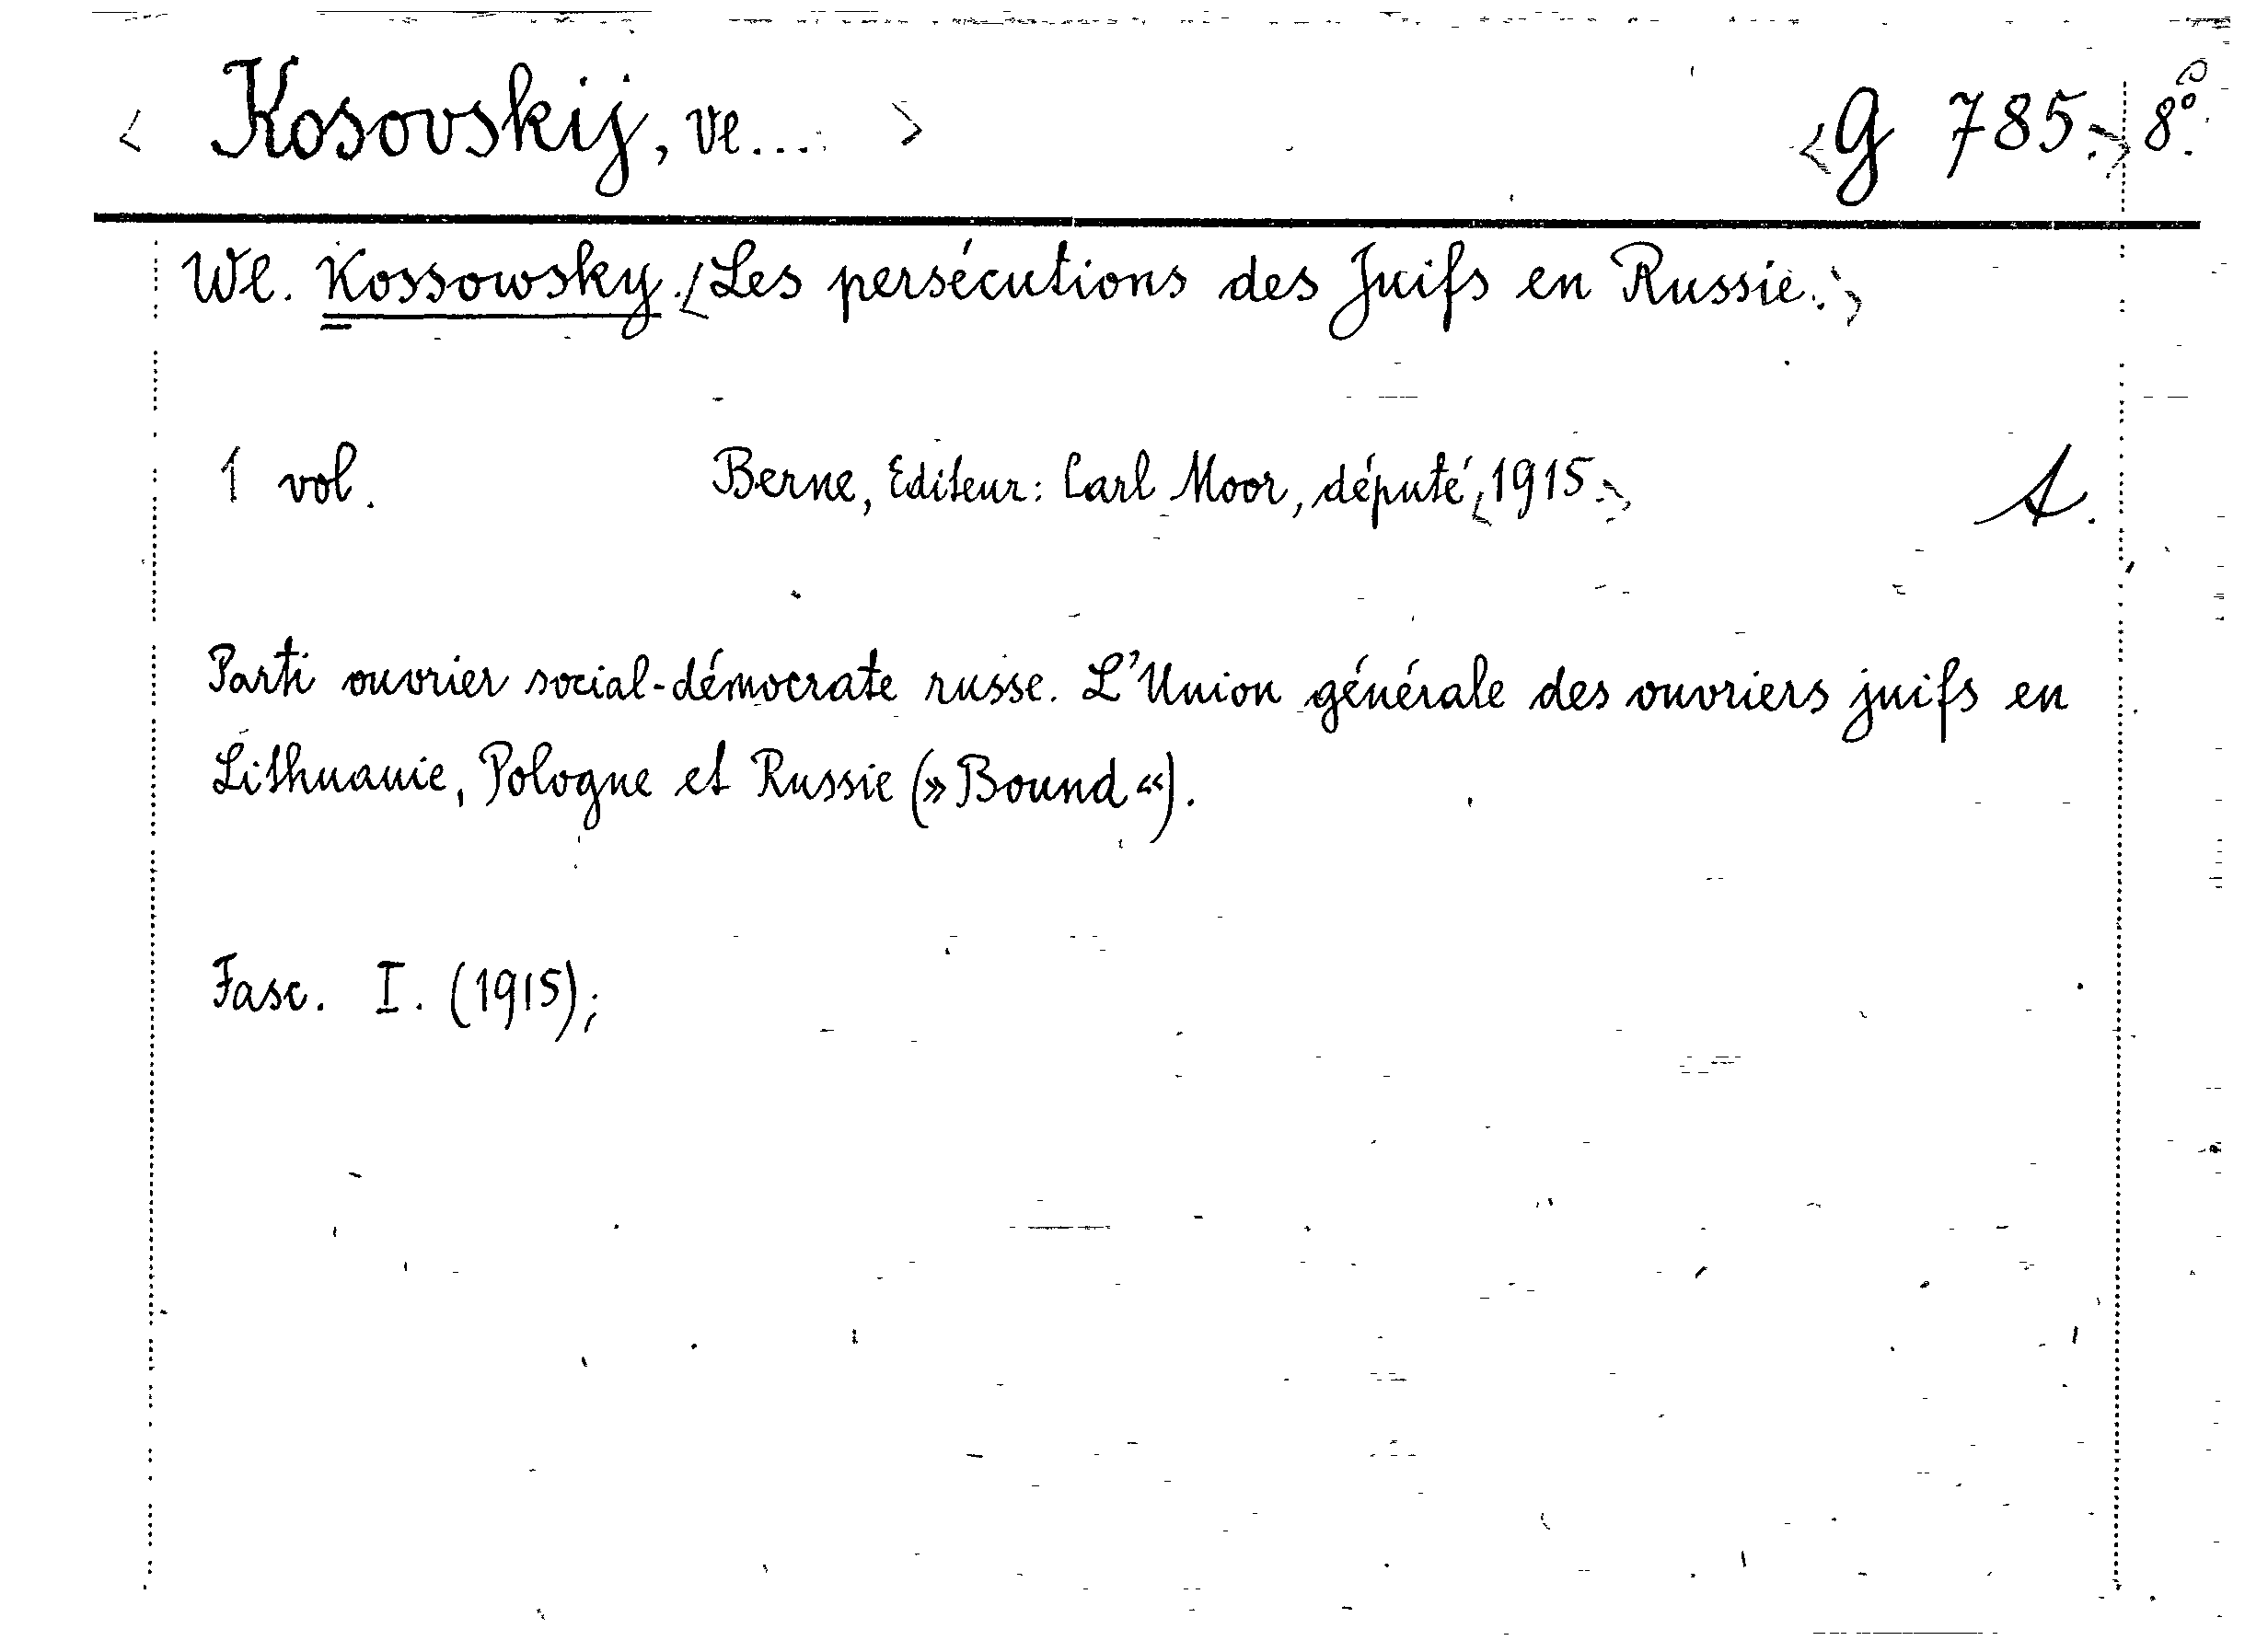 < Kosovskij, Vl... > <G 785.> 8°.
Wl. Kossowsky. <Les persécutions des Juifs en Russie.>
1 vol. Berne, Editeur: Carl Moor, député, <1915.> A.
Parti ouvrier social-démocrate russe. L'Union générale des ouvriers juifs en
Lithuanie, Pologne et Russie (»Bound«).
Fasc. I. (1915);